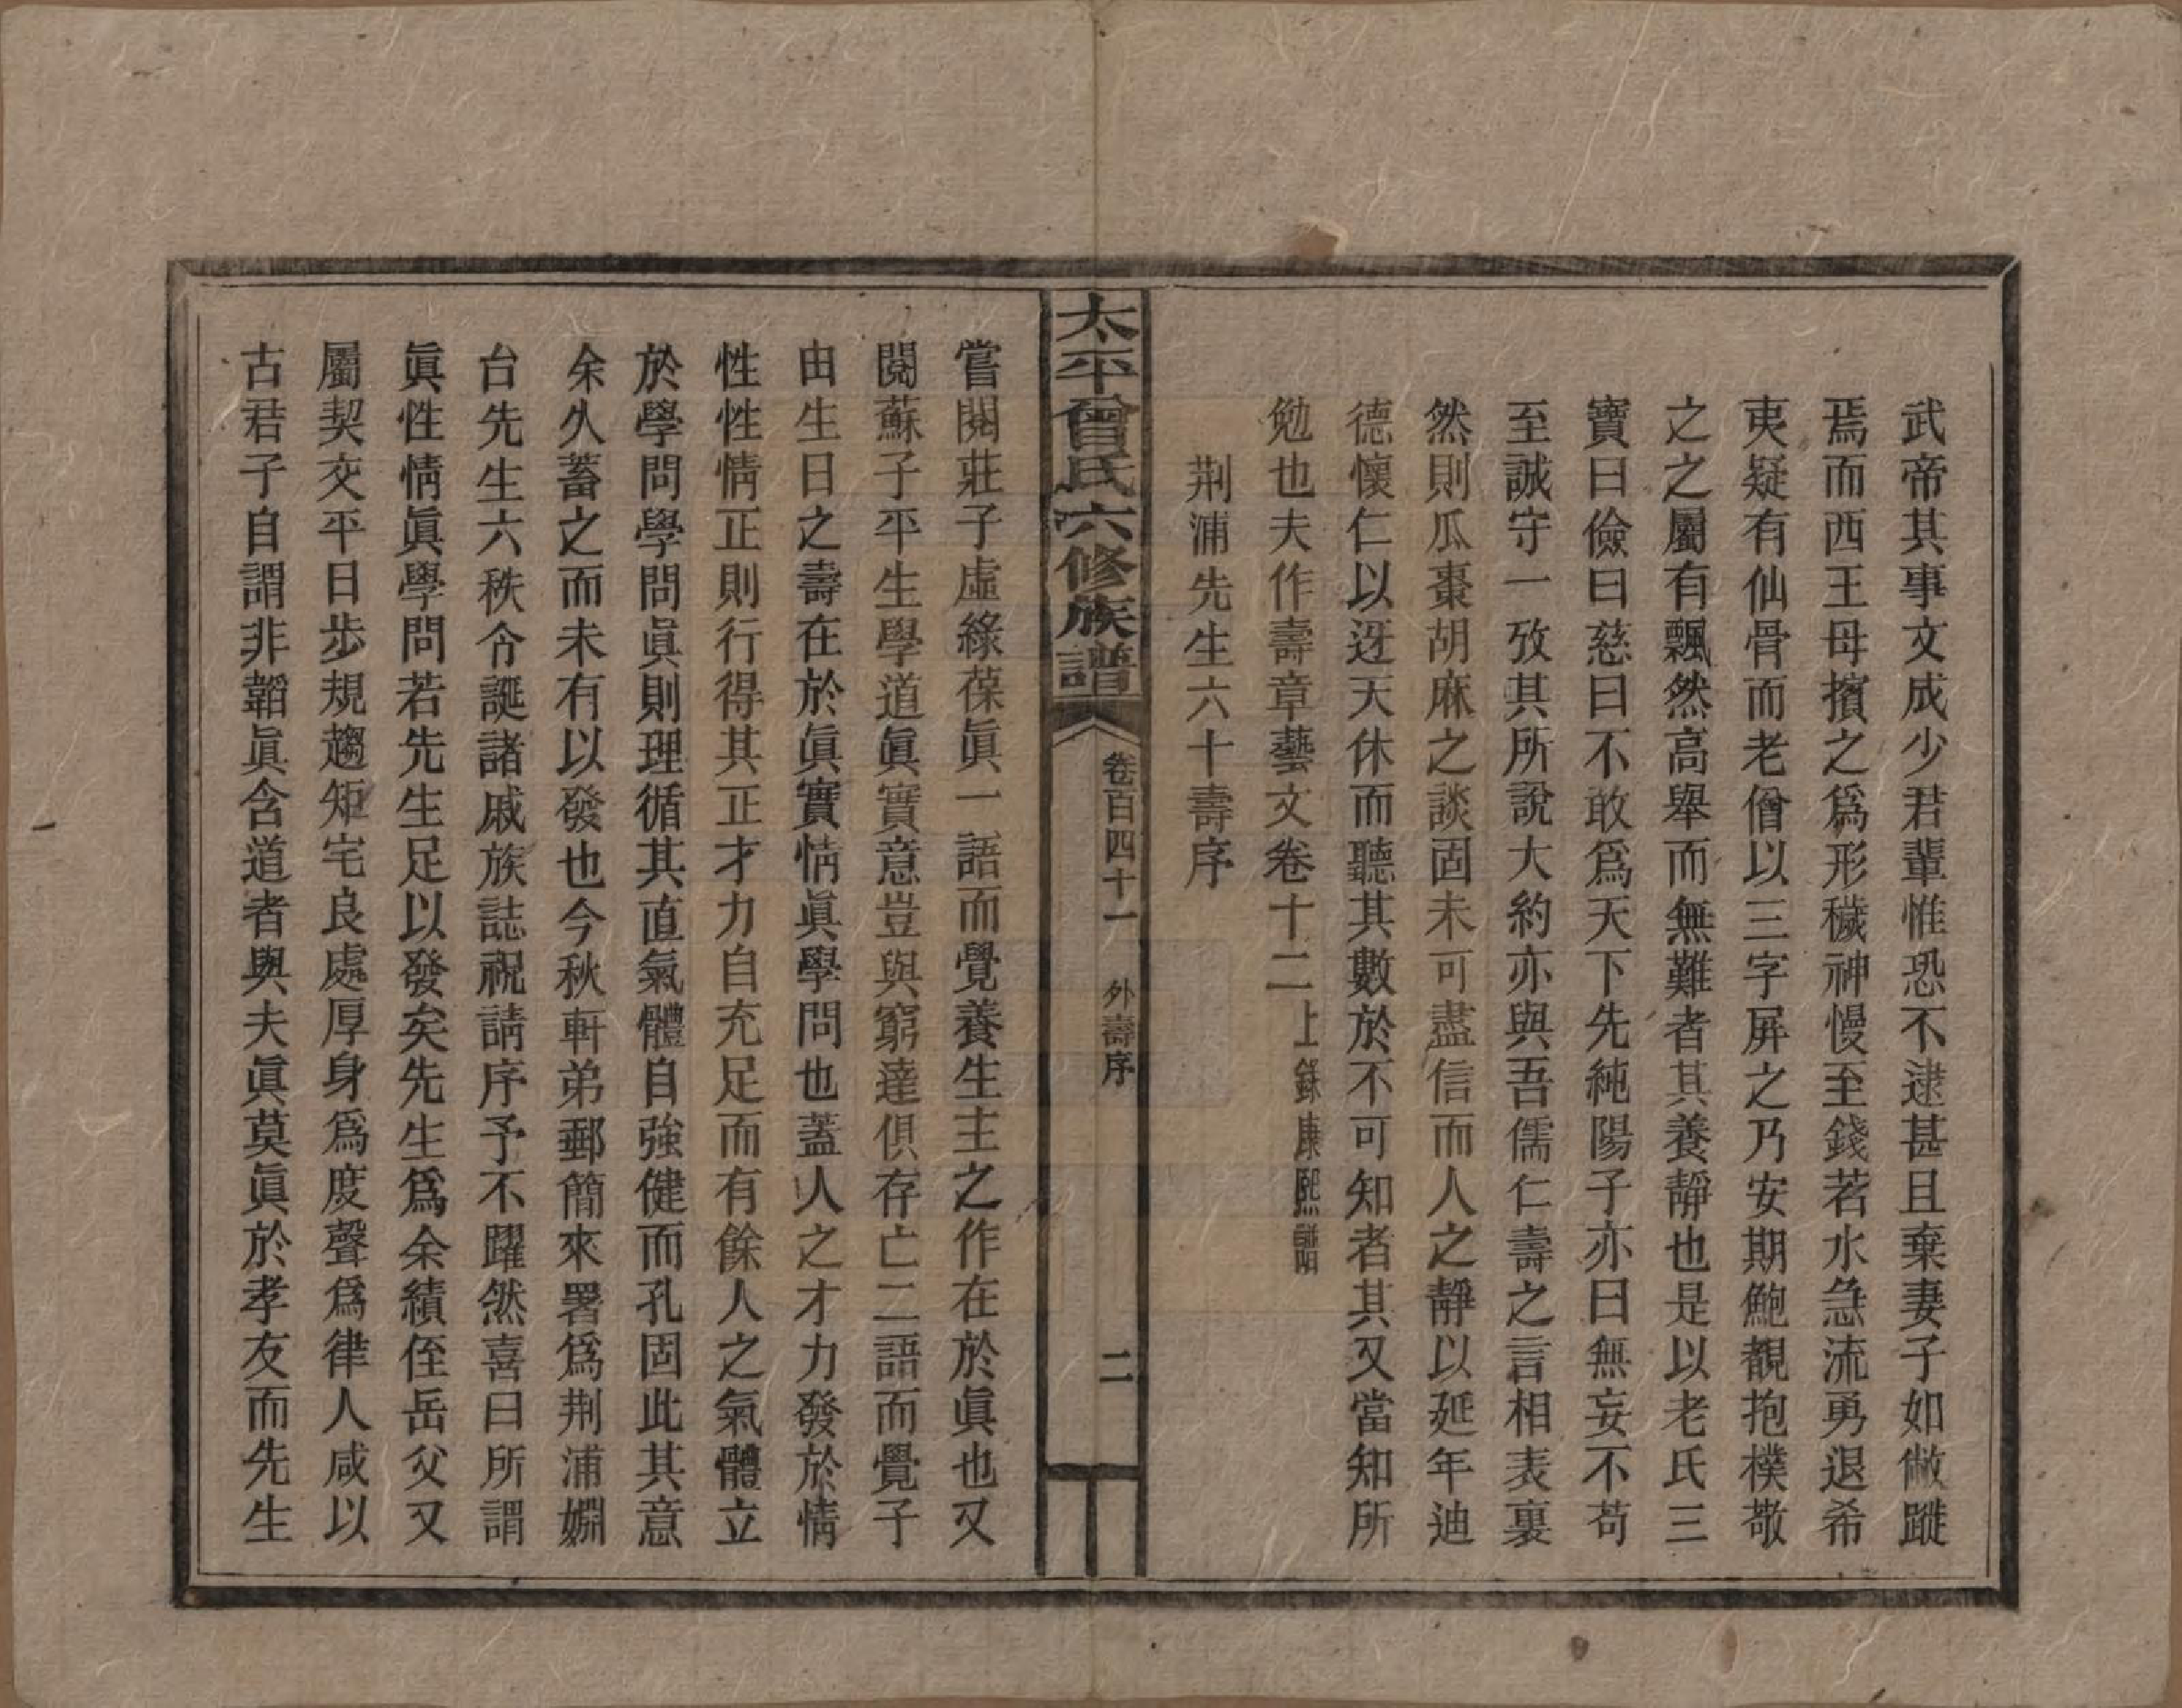 武帝其事文成少君輩惟恐不逮甚且棄妻子如敝蹝
焉而西王母擯之爲形穢神慢至錢若水急流勇退希
夷疑有仙骨而老僧以三字屏之乃安期鮑靚抱樸敬
之之屬有飄然高舉而無難者其養靜也是以老氏三
寶曰儉曰慈曰不敢爲天下先純陽子亦曰無妄不苟
至誠守一攷其所說大約亦與吾儒仁壽之言相表裏
然則瓜棗胡麻之談固未可盡信而人之靜以延年迪
德懷仁以迓天休而聽其數於不可知者其又當知所
勉也夫作壽章藝文卷十二上錄康熙
荆浦先生六十壽序
太平曾氏六修族譜
卷百四十一 外壽序 二
嘗閱莊子虛緣葆眞一語而覺養生主之作在於眞也又
閱蘇子平生學道眞實意豈與窮達俱存亡二語而覺子
由生日之壽在於眞實情眞學問也蓋人之才力發於情
性性情正則行得其正才力自充足而有餘人之氣體立
於學問學問眞則理循其直氣體自強健而孔固此其意
余久蓄之而未有以發也今秋軒弟郵簡來署爲荆浦嫺
台先生六秩令誕諸戚族誌祝請序予不躍然喜曰所謂
眞性情眞學問若先生足以發矣先生爲余績侄岳父又
屬契交平日步規趨矩宅良處厚身爲度聲爲律人咸以
古君子自謂非韜眞含道者與夫眞莫眞於孝友而先生